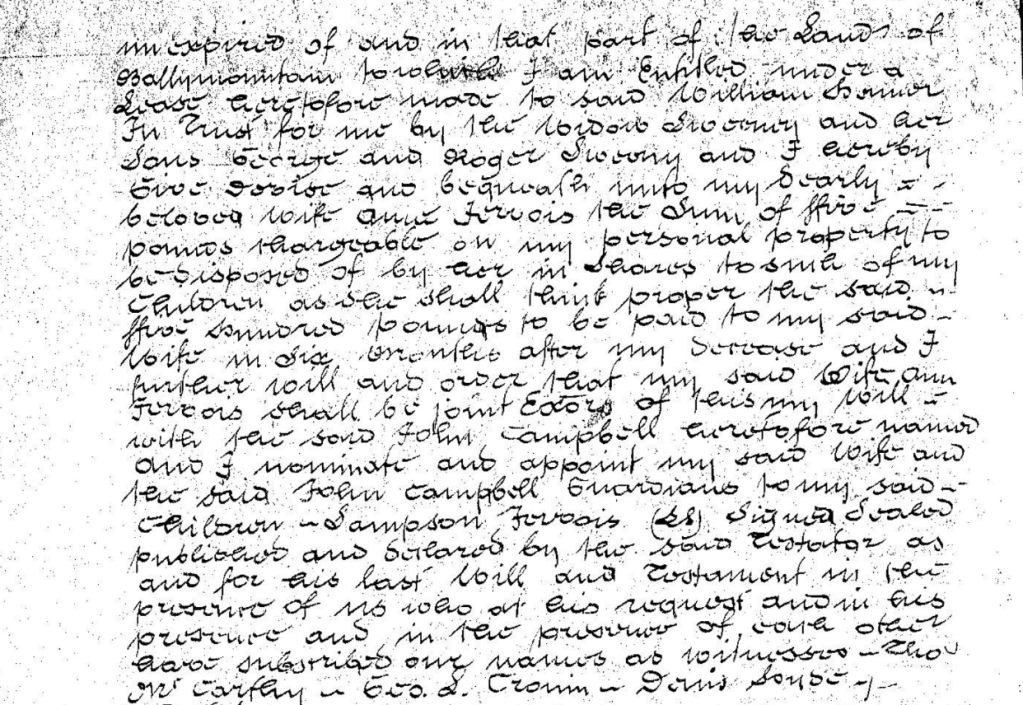 unexpired of and in that part of the Lands of
Ballymountain to which I am Entitled under a
Lease heretofore made to said William
In Trust for me by the Widow Sweeney and her
Sons George and Roger Sweeny and I hereby
Give Devise and bequeath unto my Dearly =
beloved wife Anne Jervois the Sum of ffive =
pounds chargeable on my personal property to
be disposed of by her in Shares to such of my
Children as she shall think proper the said -
ffive hundred pounds to be paid to my said -
Wife in Six Months after my Decease and I
further Will and order that my said Wife Ann
Jervois shall be joint Exŏrs of this my Will -
with the said John Campbell heretofore named
and I nominate and appoint my said Wife and
the said John Campbell Guardians to my said -
Children - Sampson Jervois (LS) Signed Sealed
published and Declared by the said Testator as
and for his last Will and Testament in the
presence of us who at his request and in his
presence and in the presence of each other
have subscribed our names as witnesses - Thos
Mc Carthy - Geo. S. Cronin - Denis